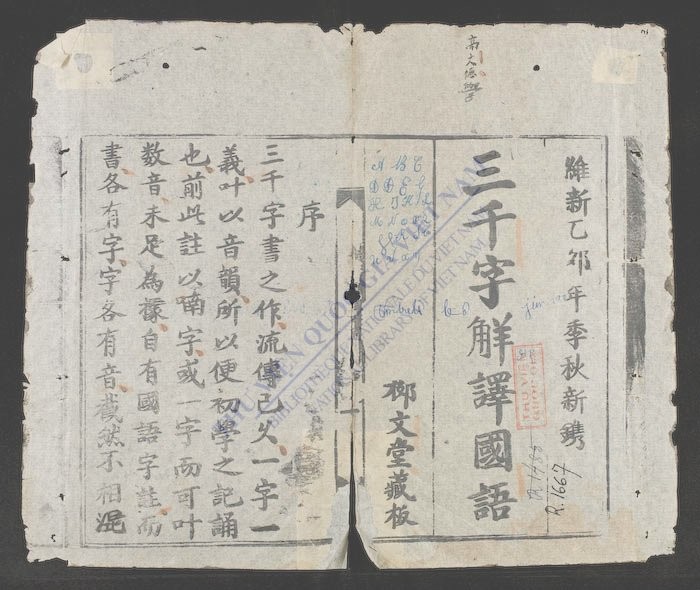 維新乙卯年季秋新鐫
三千字解譯國語
柳文堂藏板
序
三千字書之作流傳已久一字一
義叶以音韻所以便初學之記誦
也前此註以喃字或一字而可叶
数音未足為樣自有國語字註而
書各有字字各有音截然不相混
THƯ VIỆN QUỐC GIA VIỆT NAM
BIBLIOTHEQUE NATIONALE DU VIETNAM
NATIONAL LIBRARY OF VIETNAM
A B C
R.1667